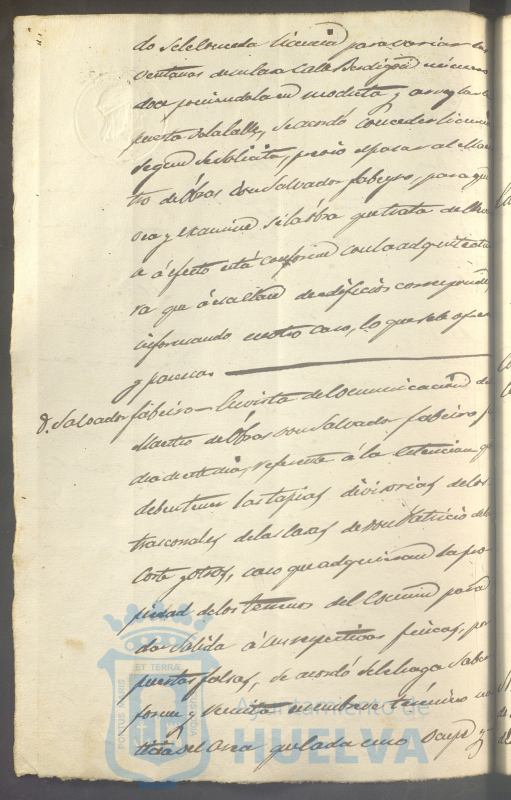 do sele conceda licencia para variar las
ventanas de una casa Calle Berdigon número
doce poniendola en modesta, y arreglar la
puerta de la calle, se acordó conceder licencia
segun se solicita, previo el pasar al Maes
tro de Obras Don Salvador fabeyro, para que
vea y examine si la obra que trata de lleva
a á efecto está conforme con la adquitectu
ra que á esa clase de edificios corresponde,
informando en otro caso, lo que sele ofrez
y parezca
D. Salvador fabeiro En vista de la comunicación del
Maestro de Obras Don Salvador fabeiro
dia de este dia, referente á la estencion que
deben tener las tapias divisorias de los
trascorrales de las casas de Don Patricio de la
Corte y otros, caso que adquieran la pro
piedad de los terrenos del Comun para
dar salida á sus respectivas fincas, por
puertas falsas, se acordó sele haga saber
forme y remita en un breve término
del area que cada uno ocupe y
PORTUS MARIS ET TERRÆ CUSTODIA
Ayuntamiento de
HUELVA